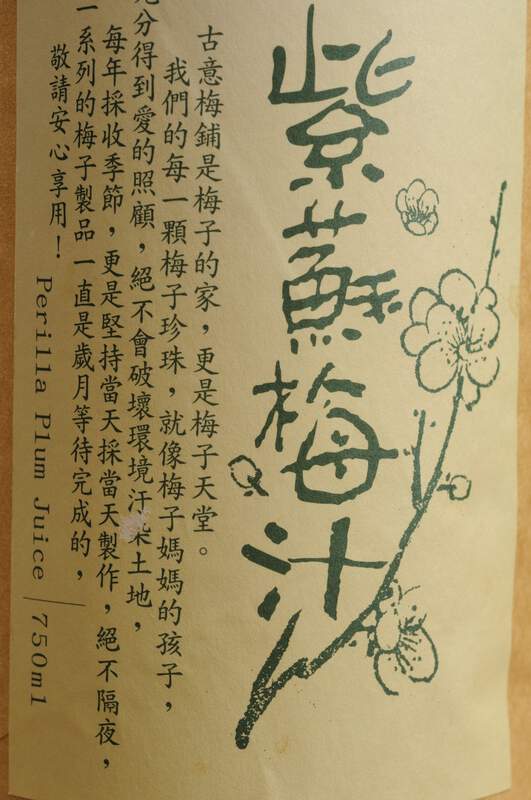 紫蘇梅汁
古意梅鋪是梅子的家，更是梅子天堂。
我們的每一顆梅子珍珠，就像梅子媽媽的孩子，
充分得到愛的照顧，絕不會破壞環境汙染土地，
每年採收季節，更是堅持當天採當天製作，絕不隔夜，
一系列的梅子製品一直是歲月等待完成的，
敬請安心享用！
Perilla Plum Juice | 750ml